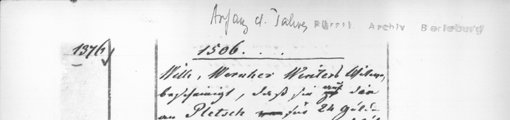 Anfang d. Jahres Fürstl. Archiv Berleburg
1376
1506. . .
Nille, Wernher Winters Witwe,
bescheinigt, daß sie auf den
an Pletsch für 24 Guld-